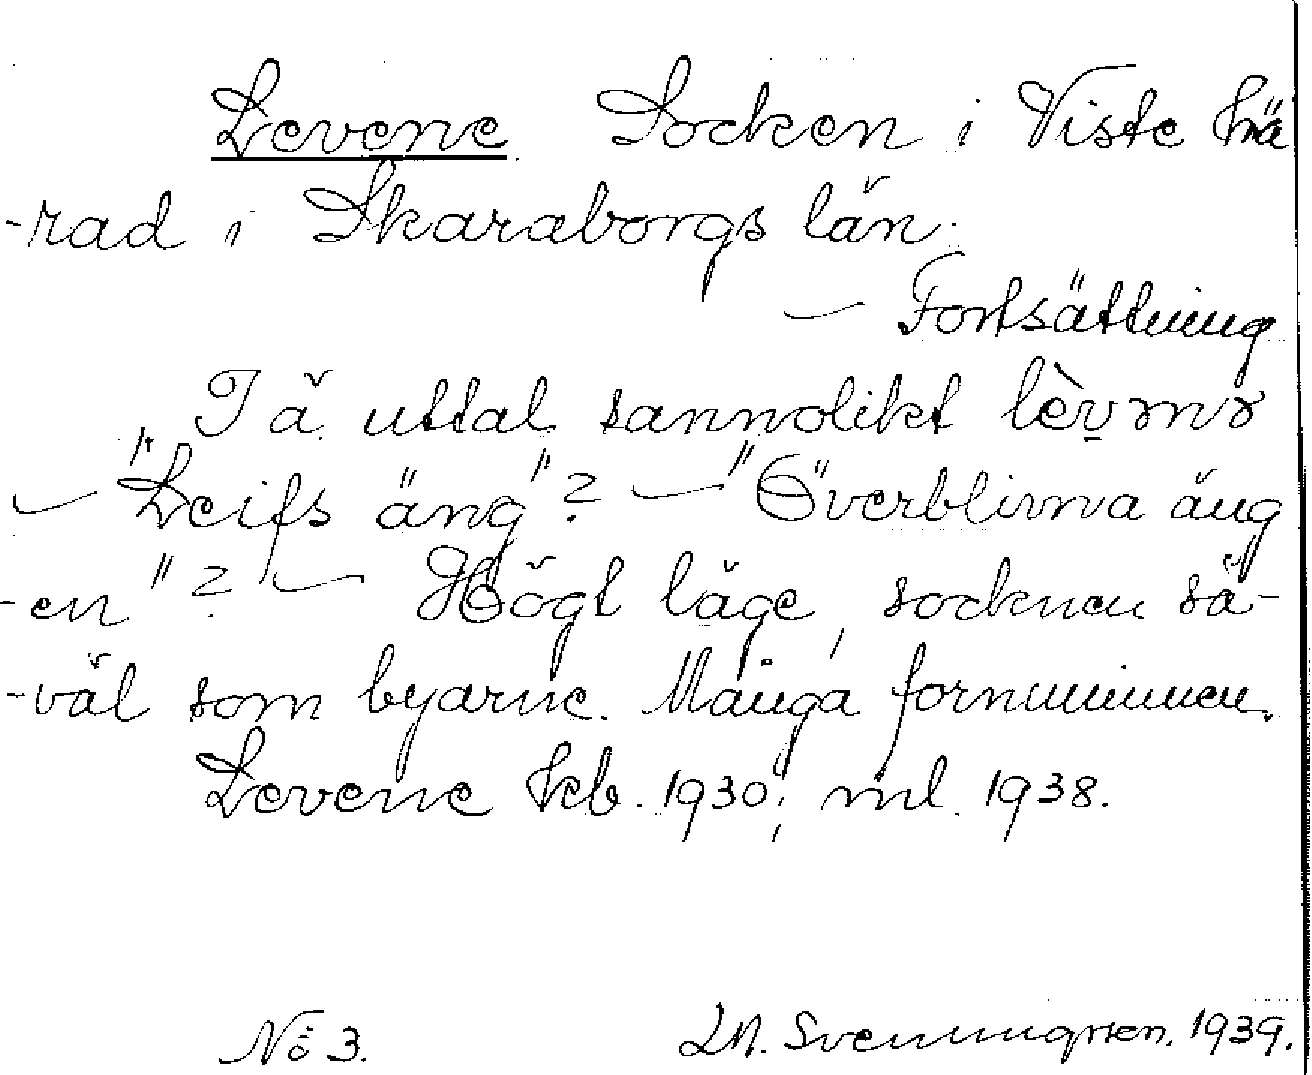 Levene Socken i Viste hä
-rad i Skaraborgs län.
— Fortsättning
I ä. uttal sannolikt lèvənə
— "Leifs äng"? — "Överblivna äng
-en"? — Högt läge, socknen så-
-väl som byarne. Många fornminnen.
Levene kb. 1930; ml. 1938.
No 3. Svenungsson. 1939.